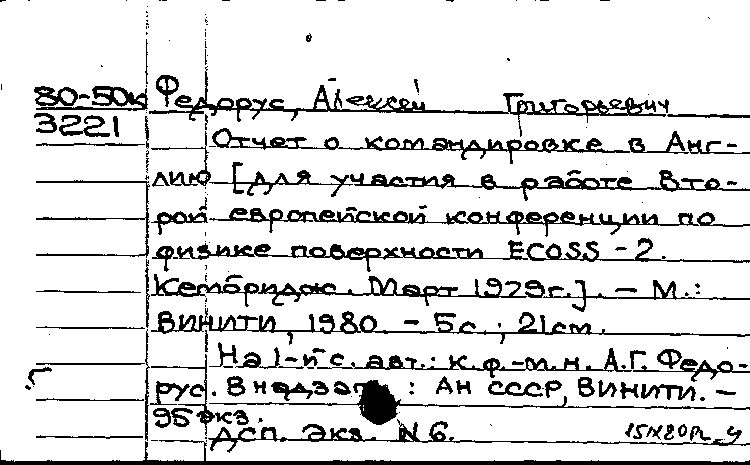 80-50к Федорус, Алексей Григорьевич
3221
Отчет о командировке в Анг-
лию [для участия в работе Вто-
рой европейской конференции по
физике поверхности ECOSS - 2.
Кембридж. Март 1979г.]. - М.:
ВИНИТИ, 1980. - 5с.; 21см.
На 1-й с. авт.: к.ф.-м.н. А.Г. Федо-
рус. В надзаг.: АН СССР, ВИНИТИ. -
95 экз.
ДСП. Экз. N 6.